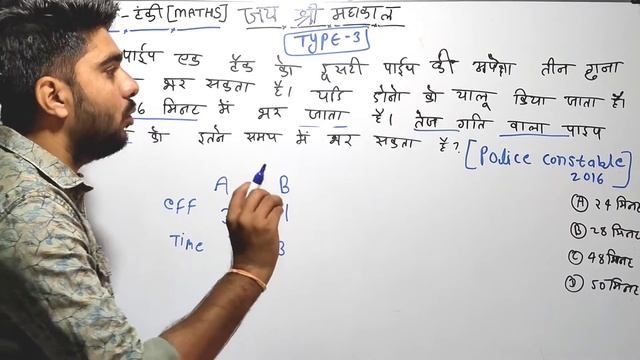 - टंकी [MATHS] जय श्री महाकाल
TYPE-3
पाईप एक टैंक को दूसरी पाईप की अपेक्षा तीन गुना
भर सकता है। यदि दोनो को चालू किया जाता है।
36 मिनट में भर जाता है। तेज गति वाला पाइप
को इतने समय में भर सकता है?
[Police constable 2016]
A B
Eff 1
Time 3
(A) 24 मिनट
(B) 28 मिनट
(C) 48 मिनट
(D) 50 मिनट